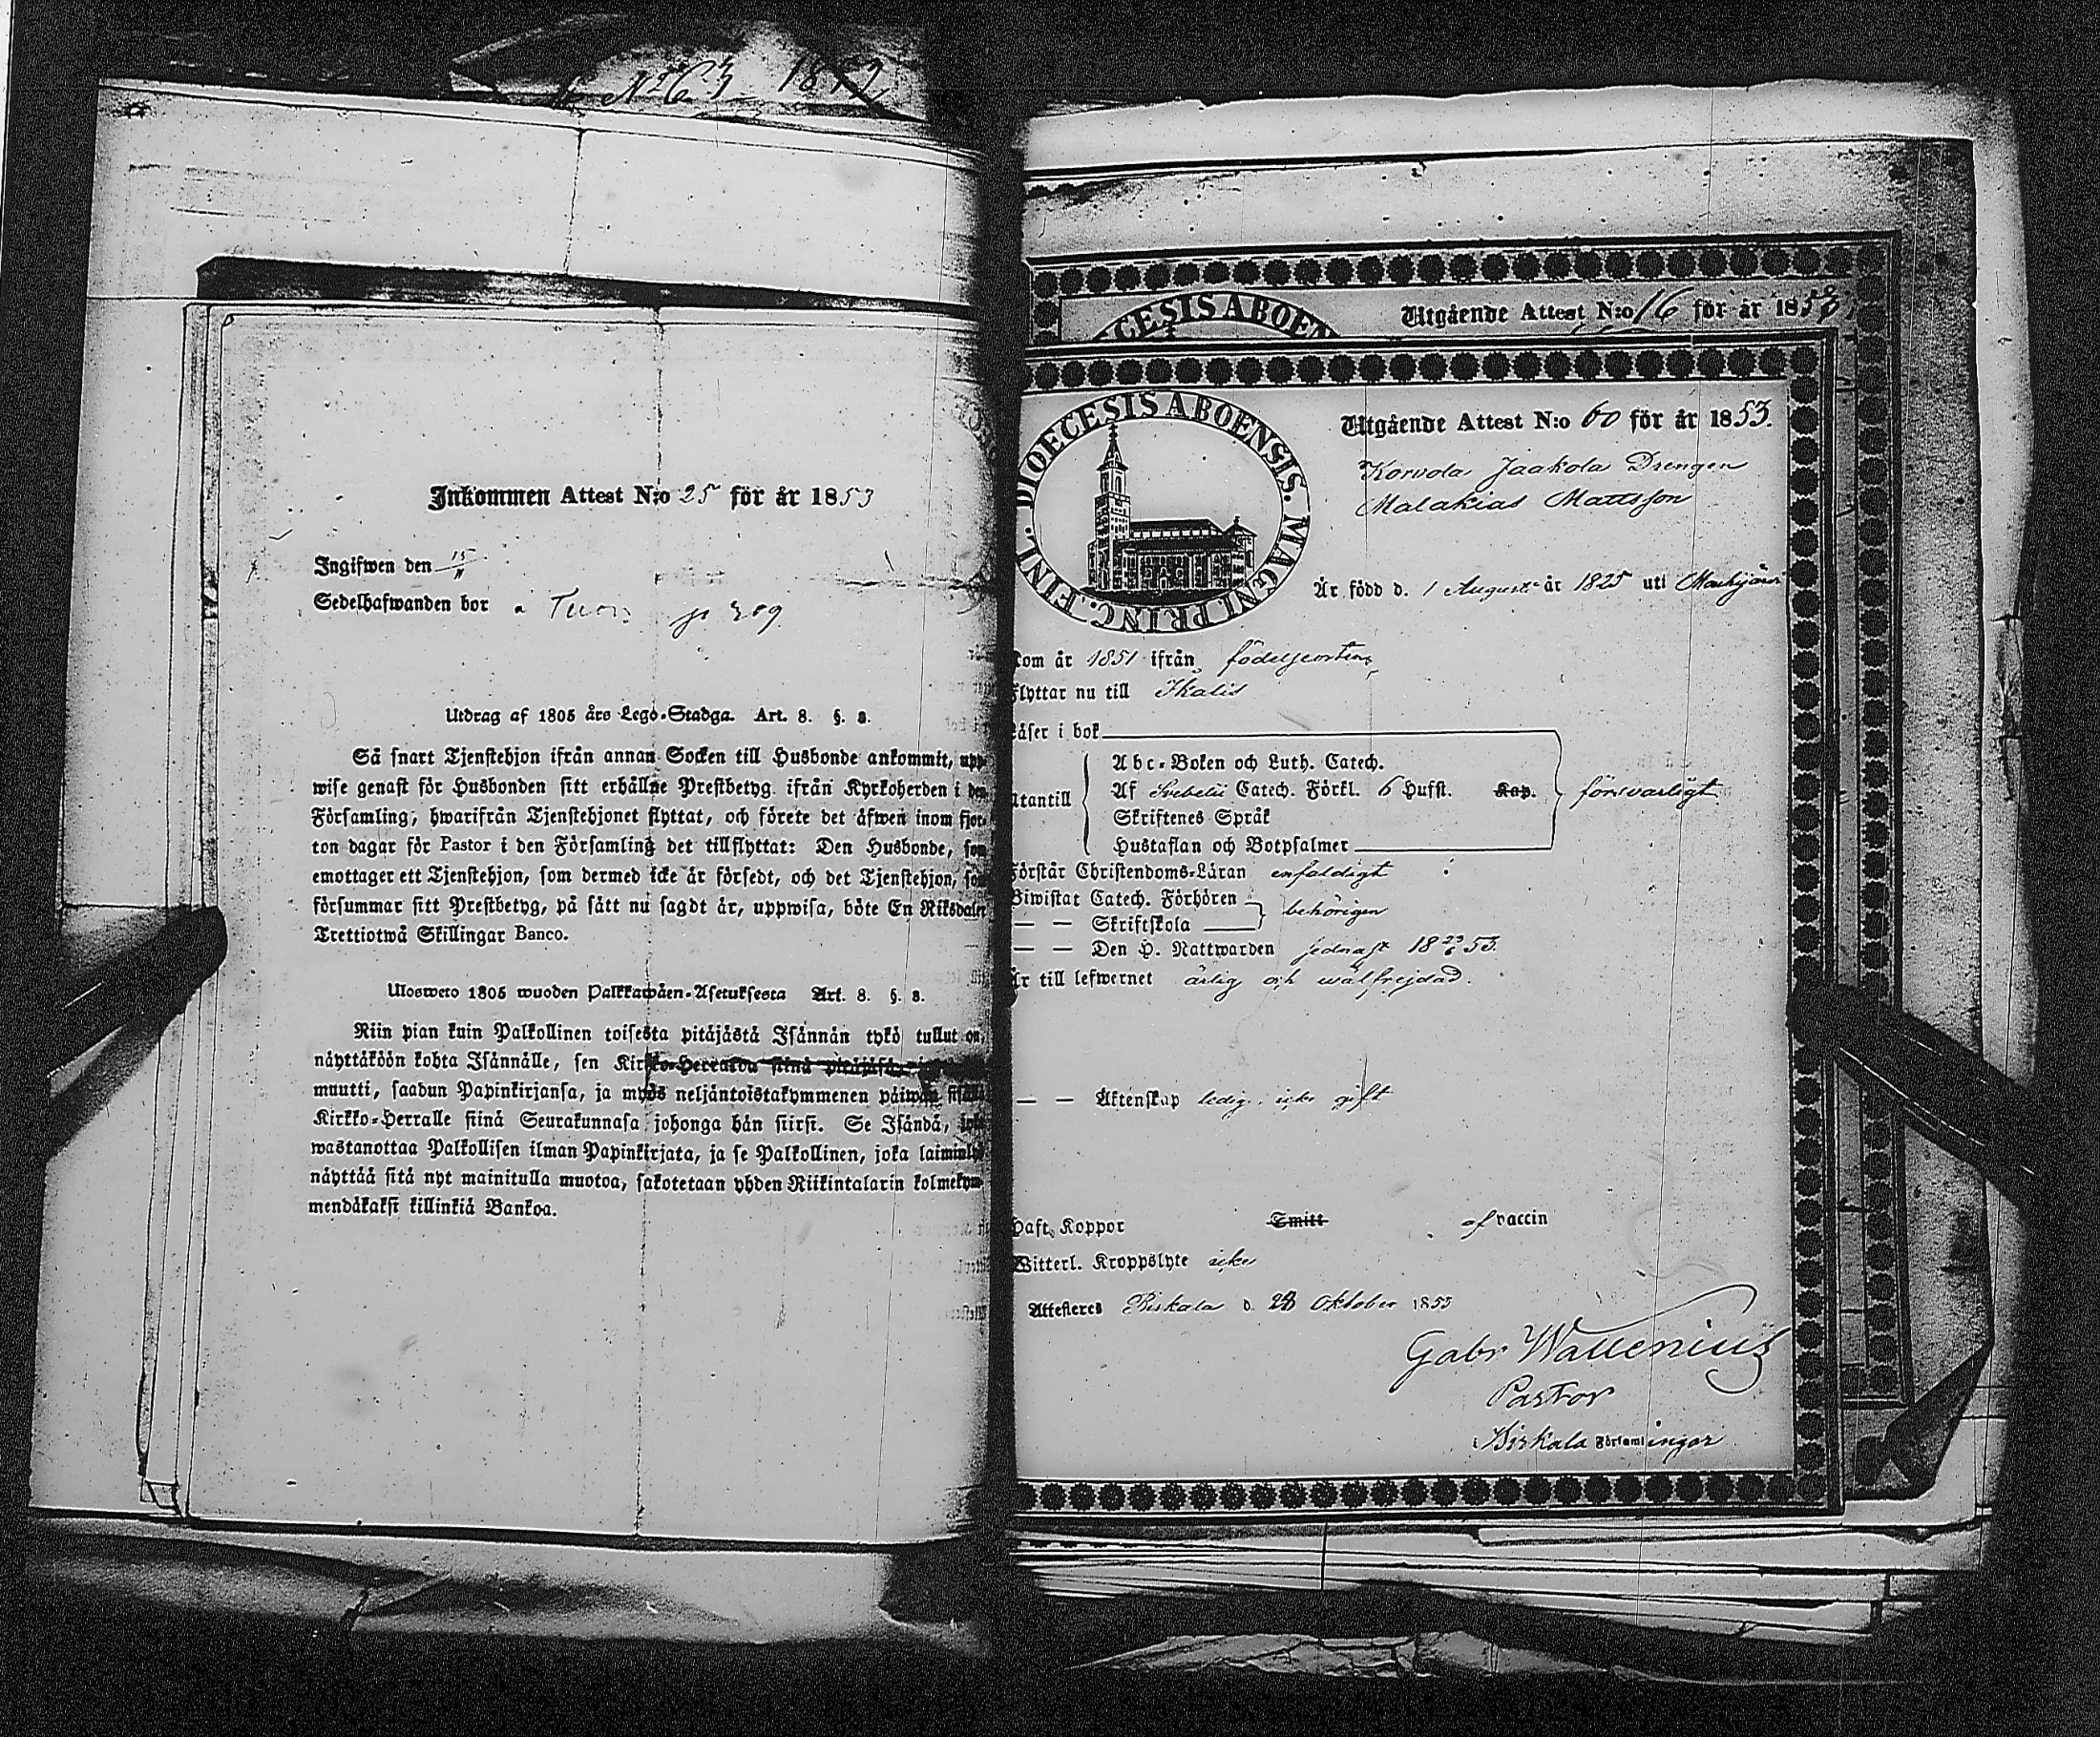 1852
Inkommen Attest N:o 25 för år 1853
Ingifwen den 15/11
Sedelhafwanden bor å
Utdrag af 1805 års Lego-Stadga. Art. 8. §. 8.
Så snart Tjenstehjon ifrån annan Socken till Husbonde ankommit, upp-
wise genast för Husbonden sitt erhållne Prestbetyg ifrån Kyrkoherden i den
Församling, hwarifrån Tjenstehjonet flyttat, och förete det åfwen inom fjor-
ton dagar för Pastor i den Församling det tillflyttat: Den Husbonde, som
emottager ett Tjenstehjon, som dermed icke är försedt, och det Tjenstehjon, som
försummar sitt Prestbetyg, på sätt nu sagdt är, uppwisa, böte En Riksdaler
Trettiotwå Skillingar Banco.
Ulosweto 1805 wuoden Palkkawäen-Asetuksesta Art. 8. §. 8.
Niin pian kuin Palkollinen toisesta pitäjästä Isännän tykö tullut on,
näyttäköön kohta Isännälle, sen Kirkko-Herralda siinä pitäjäsä,
muutti, saadun Papinkirjansa, ja myös neljäntoistakymmenen päiwän sisällä
Kirkko-Herralle siinä Seurakunnasa johonga hän siirsi. Se Isändä, joka
wastanottaa Palkollisen ilman Papinkirjata, ja se Palkollinen, joka laiminlyö
näyttää sitä nyt mainitulla muotoa, sakotetaan yhden Riikintalarin kolmekym-
mendäkaksi killinkiä Bankoa.
CESIS ABOEN
Utgående Attest N:o 16 för år 1853
DIOECESIS ABOENSIS. MAGNI PRINC. FINL.
Utgående Attest N:o 60 för år 1853.
Korvola Jaakola Drengen
Malakias Mattsson
Är född d. 1 Augusti år 1825 uti Mouhijärvi
kom år 1851 ifrån födelseorten
flyttar nu till Ikalis
Läser i bok
utantill
Abc-Boken och Luth. Catech.
Af Svebelii Catech. Förkl. 6 Hufst. Kap. försvarligt
Skriftenes Språk
Hustaflan och Botpsalmer
Förstår Christendoms-Läran enfaldigt
Biwistat Catech. Förhören
— — Skriftskola behörigen
— — Den H. Nattwarden sednast 18 23/6 53.
Är till lefwernet ärlig och wälfrejdad.
— — Äktenskap ledig, icke gift
Haft Koppor Smitt af vaccin
Witterl. Kroppslyte icke
Attesteres Birkala d. 28 Oktober 1853
Gabr Wallenius
Pastor
i Birkala Församlingar